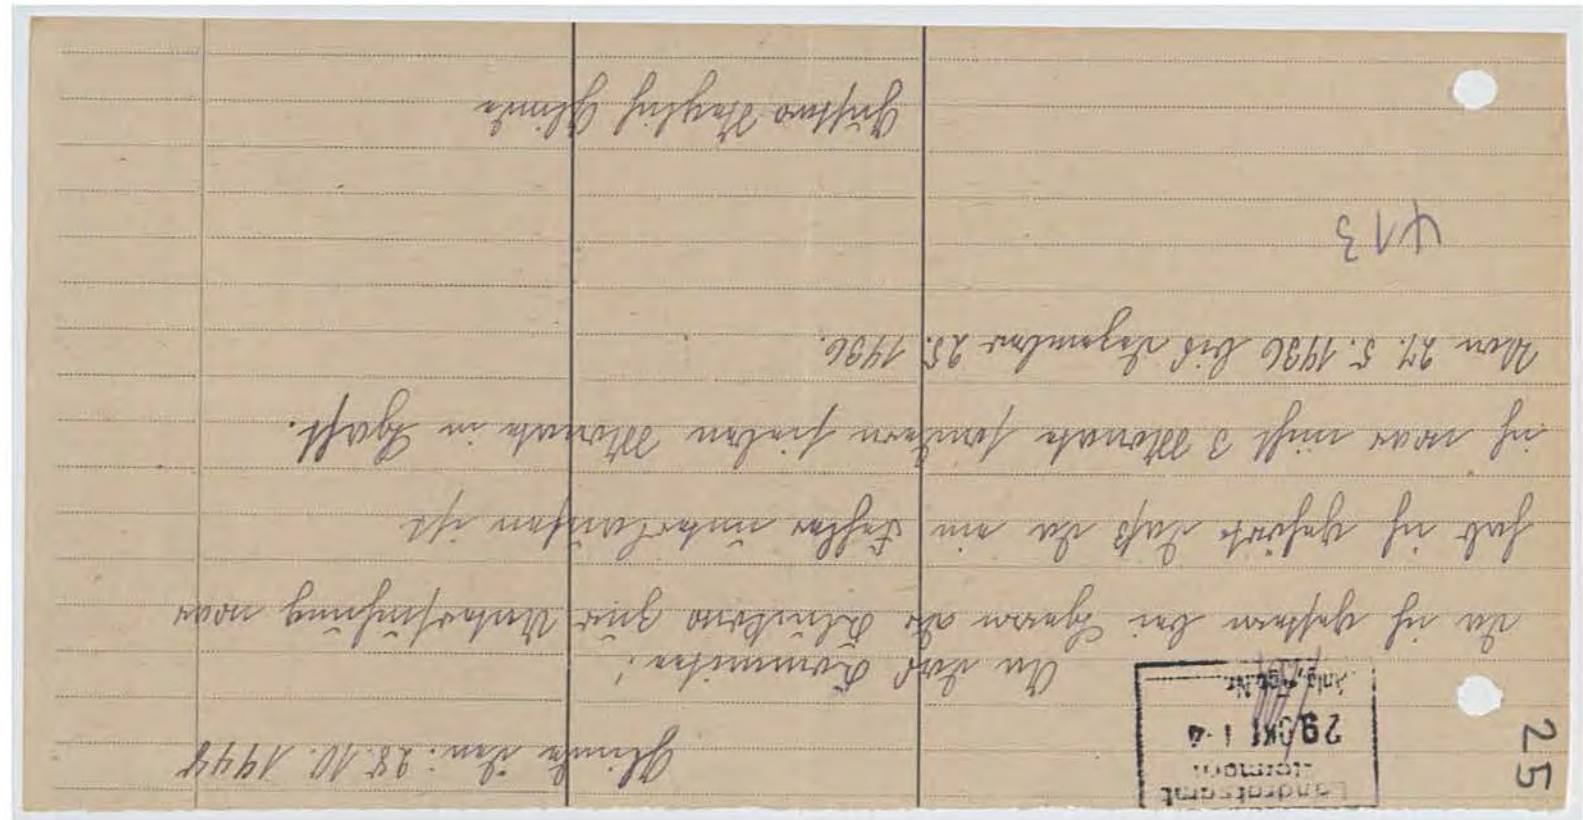 25
Landratsamt
Stormarn
29. OKT.
Anlg. Tgb. Nr.
Glinde den: 28.10.1948
An das Kommitee!
da ich gestern bei Herrn zur Untersuchung war
hab ich gehört daß da ein Fehler unterlaufen ist
ich war nicht 3 Monate sondern sieben Monate in Haft.
Von 27. 5. 1936 bis Dezember 25. 1936.
413
Gustav Glinde